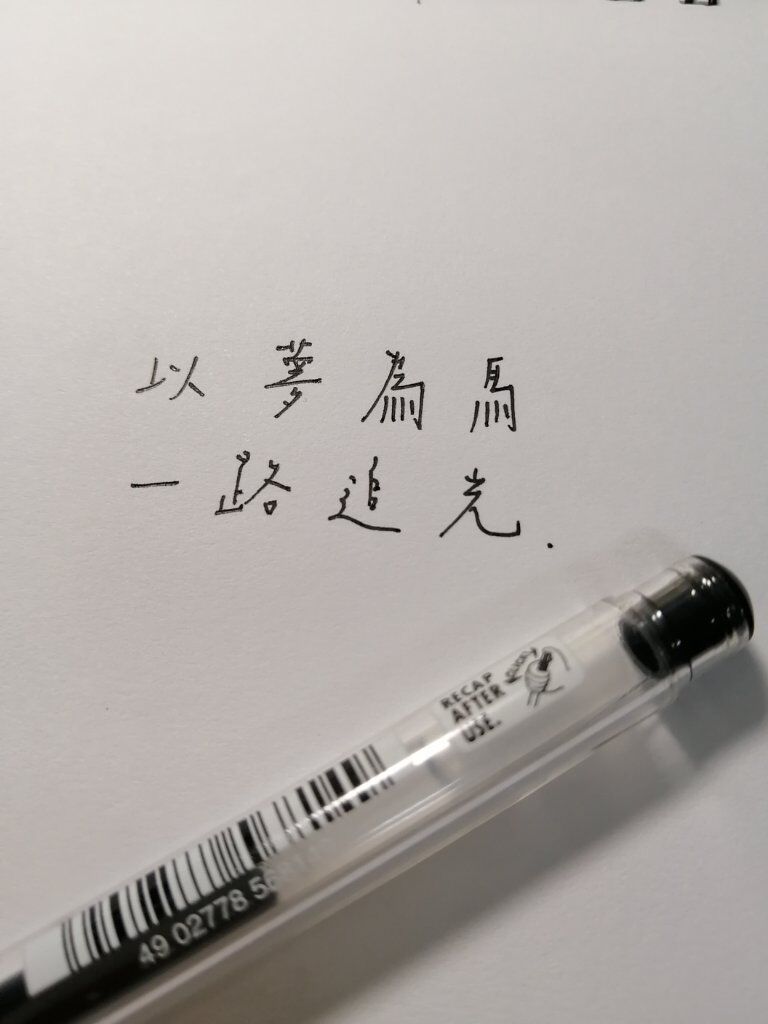 以夢為馬
一路追光.
RECAP
AFTER
USE.
49 02778